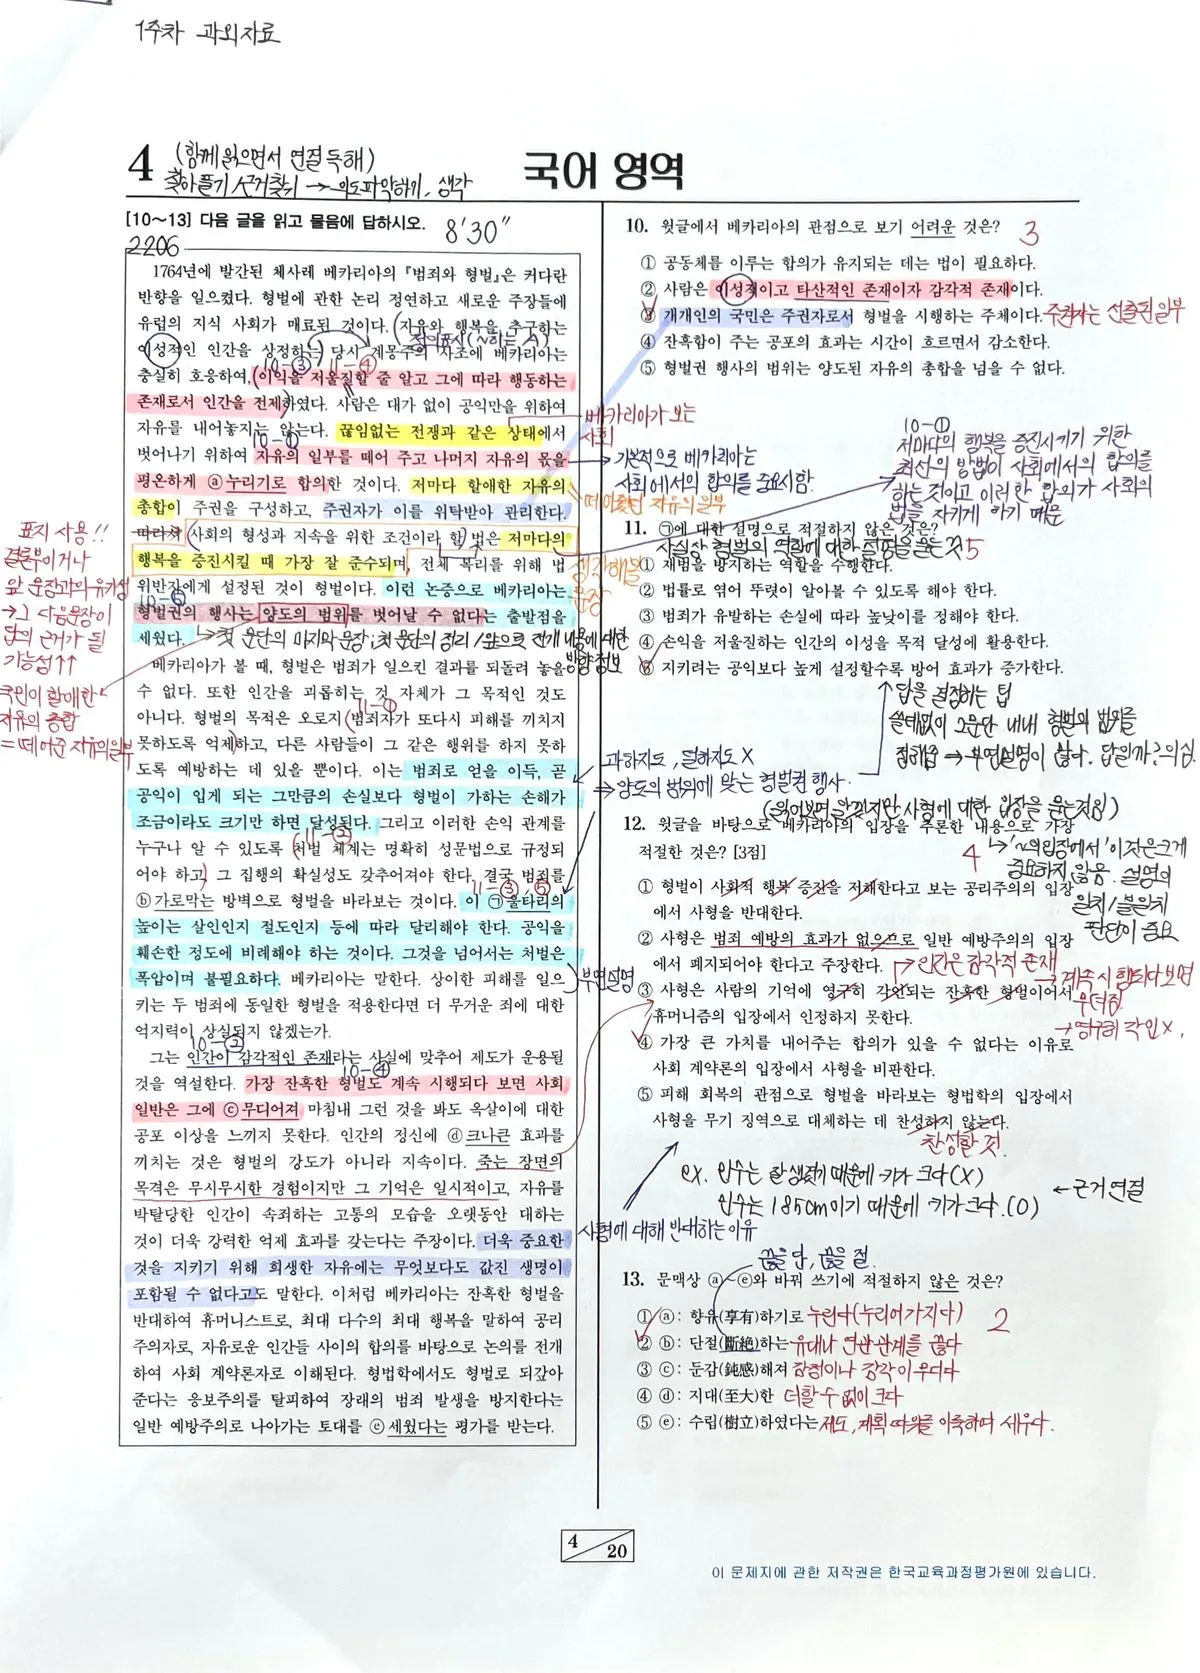 1주차 과외자료
4
(함께 읽으면서 연결 독해)
찾아풀기 / 근거찾기 → 의도파악하기, 생각
국어 영역
[10~13] 다음 글을 읽고 물음에 답하시오.
8'30"
2206
1764년에 발간된 체사레 베카리아의 『범죄와 형벌』은 커다란
반향을 일으켰다. 형벌에 관한 논리 정연하고 새로운 주장들에
유럽의 지식 사회가 매료된 것이다. 자유와 행복을 추구하는
이성적인 인간을 상정하는 당시 계몽주의 사조에 베카리아는
충실히 호응하여, 이익을 저울질할 줄 알고 그에 따라 행동하는
존재로서 인간을 전제하였다. 사람은 대가 없이 공익만을 위하여
자유를 내어놓지는 않는다. 끊임없는 전쟁과 같은 상태에서
벗어나기 위하여 자유의 일부를 떼어 주고 나머지 자유의 몫을
평온하게 ⓐ누리기로 합의한 것이다. 저마다 할애한 자유의
총합이 주권을 구성하고, 주권자가 이를 위탁받아 관리한다.
따라서 사회의 형성과 지속을 위한 조건이라 할 법은 저마다의
행복을 증진시킬 때 가장 잘 준수되며, 전체 복리를 위해 법
위반자에게 설정된 것이 형벌이다. 이런 논증으로 베카리아는
형벌권의 행사는 양도의 범위를 벗어날 수 없다는 출발점을
세웠다.
베카리아가 볼 때, 형벌은 범죄가 일으킨 결과를 되돌려 놓을
수 없다. 또한 인간을 괴롭히는 것 자체가 그 목적인 것도
아니다. 형벌의 목적은 오로지 범죄자가 또다시 피해를 끼치지
못하도록 억제하고, 다른 사람들이 그 같은 행위를 하지 못하
도록 예방하는 데 있을 뿐이다. 이는 범죄로 얻을 이득, 곧
공익이 입게 되는 그만큼의 손실보다 형벌이 가하는 손해가
조금이라도 크기만 하면 달성된다. 그리고 이러한 손익 관계를
누구나 알 수 있도록 처벌 체계는 명확히 성문법으로 규정되
어야 하고, 그 집행의 확실성도 갖추어져야 한다. 결국 범죄를
ⓑ가로막는 방벽으로 형벌을 바라보는 것이다. 이 ㉠울타리의
높이는 살인인지 절도인지 등에 따라 달리해야 한다. 공익을
훼손한 정도에 비례해야 하는 것이다. 그것을 넘어서는 처벌은
폭압이며 불필요하다. 베카리아는 말한다. 상이한 피해를 일으
키는 두 범죄에 동일한 형벌을 적용한다면 더 무거운 죄에 대한
억지력이 상실되지 않겠는가.
그는 인간이 감각적인 존재라는 사실에 맞추어 제도가 운용될
것을 역설한다. 가장 잔혹한 형벌도 계속 시행되다 보면 사회
일반은 그에 ⓒ무디어져 마침내 그런 것을 봐도 옥살이에 대한
공포 이상을 느끼지 못한다. 인간의 정신에 ⓓ크나큰 효과를
끼치는 것은 형벌의 강도가 아니라 지속이다. 죽는 장면의
목격은 무시무시한 경험이지만 그 기억은 일시적이고, 자유를
박탈당한 인간이 속죄하는 고통의 모습을 오랫동안 대하는
것이 더욱 강력한 억제 효과를 갖는다는 주장이다. 더욱 중요한
것을 지키기 위해 희생한 자유에는 무엇보다도 값진 생명이
포함될 수 없다고도 말한다. 이처럼 베카리아는 잔혹한 형벌을
반대하여 휴머니스트로, 최대 다수의 최대 행복을 말하여 공리
주의자로, 자유로운 인간들 사이의 합의를 바탕으로 논의를 전개
하여 사회 계약론자로 이해된다. 형법학에서도 형벌로 되갚아
준다는 응보주의를 탈피하여 장래의 범죄 발생을 방지한다는
일반 예방주의로 나아가는 토대를 ⓔ세웠다는 평가를 받는다.
정의표시(~하는 A)
10-③
11-④
10-①
10-⑤
11-①
11-②
11-③, ⑤
10-②
10-④
표지 사용!!
결론부이거나
앞 문장과의 유기성
→ 그 다음문장이
답의 근거가 될
가능성↑↑
국민이 할애한
자유의 총합
= 떼어준 자유의 일부
베카리아가 보는
사회
기본적으로 베카리아는
사회에서의 합의를 중요시함.
= 떼어놓은 자유의 일부
생각해볼
문장
↳ 첫 문단의 마지막 문장; 첫 문단의 정리 / 앞으로 전개 내용에 대한
방향 정보
과하지도, 덜하지도 X
⇒ 양도의 범위에 맞는 형벌권 행사.
부연설명
사형에 대해 반대하는 이유
10. 윗글에서 베카리아의 관점으로 보기 어려운 것은?
3
① 공동체를 이루는 합의가 유지되는 데는 법이 필요하다.
② 사람은 이성적이고 타산적인 존재이자 감각적 존재이다.
③ 개개인의 국민은 주권자로서 형벌을 시행하는 주체이다.
주권자는 선출된 일부
④ 잔혹함이 주는 공포의 효과는 시간이 흐르면서 감소한다.
⑤ 형벌권 행사의 범위는 양도된 자유의 총합을 넘을 수 없다.
10-①
저마다의 행복을 증진시키기 위한
최선의 방법이 사회에서의 합의를
하는것이고 이러한 합의가 사회의
법을 지키게 하기 때문
11. ㉠에 대한 설명으로 적절하지 않은 것은?
사실상 형벌의 역할에 대한 설명을 묻는 것
5
① 재범을 방지하는 역할을 수행한다.
② 법률로 엮어 뚜렷이 알아볼 수 있도록 해야 한다.
③ 범죄가 유발하는 손실에 따라 높낮이를 정해야 한다.
④ 손익을 저울질하는 인간의 이성을 목적 달성에 활용한다.
⑤ 지키려는 공익보다 높게 설정할수록 방어 효과가 증가한다.
답을 결정하는 팁
쓸데없이 2문단 내내 형벌의 범위를
정해줌 → 부연설명이 많다. 답일까? 의심
(읽어보면 알겠지만 사형에 대한 입장을 묻는것임)
12. 윗글을 바탕으로 베카리아의 입장을 추론한 내용으로 가장
적절한 것은? [3점]
4
↳ '~의 입장에서' 이것은 크게
중요하지 않음. 설명의
일치/불일치
판단이 중요
① 형벌이 사회적 행복 증진을 저해한다고 보는 공리주의의 입장
에서 사형을 반대한다.
② 사형은 범죄 예방의 효과가 없으므로 일반 예방주의의 입장
에서 폐지되어야 한다고 주장한다.
인간은 감각적 존재
→ 계속 시행되다보면
무뎌짐
→ 영구히 각인 X.
③ 사형은 사람의 기억에 영구히 각인되는 잔혹한 형벌이어서
휴머니즘의 입장에서 인정하지 못한다.
④ 가장 큰 가치를 내어주는 합의가 있을 수 없다는 이유로
사회 계약론의 입장에서 사형을 비판한다.
⑤ 피해 회복의 관점으로 형벌을 바라보는 형법학의 입장에서
사형을 무기 징역으로 대체하는 데 찬성하지 않는다.
찬성할 것.
ex. 민수는 잘 생겼기 때문에 키가 크다(X)
민수는 185cm이기 때문에 키가 크다.(O)
← 근거 연결
끊을 단, 끊을 절.
13. 문맥상 ⓐ~ⓔ와 바꿔 쓰기에 적절하지 않은 것은?
2
① ⓐ: 향유(享有)하기로 누린다(누리어 가지다)
② ⓑ: 단절(斷絶)하는 유대나 연관관계를 끊다
③ ⓒ: 둔감(鈍感)해져 감정이나 감각이 무디다
④ ⓓ: 지대(至大)한 더할 수 없이 크다
⑤ ⓔ: 수립(樹立)하였다는 제도, 계획 따위를 이룩하여 세우다.
4
20
이 문제지에 관한 저작권은 한국교육과정평가원에 있습니다.